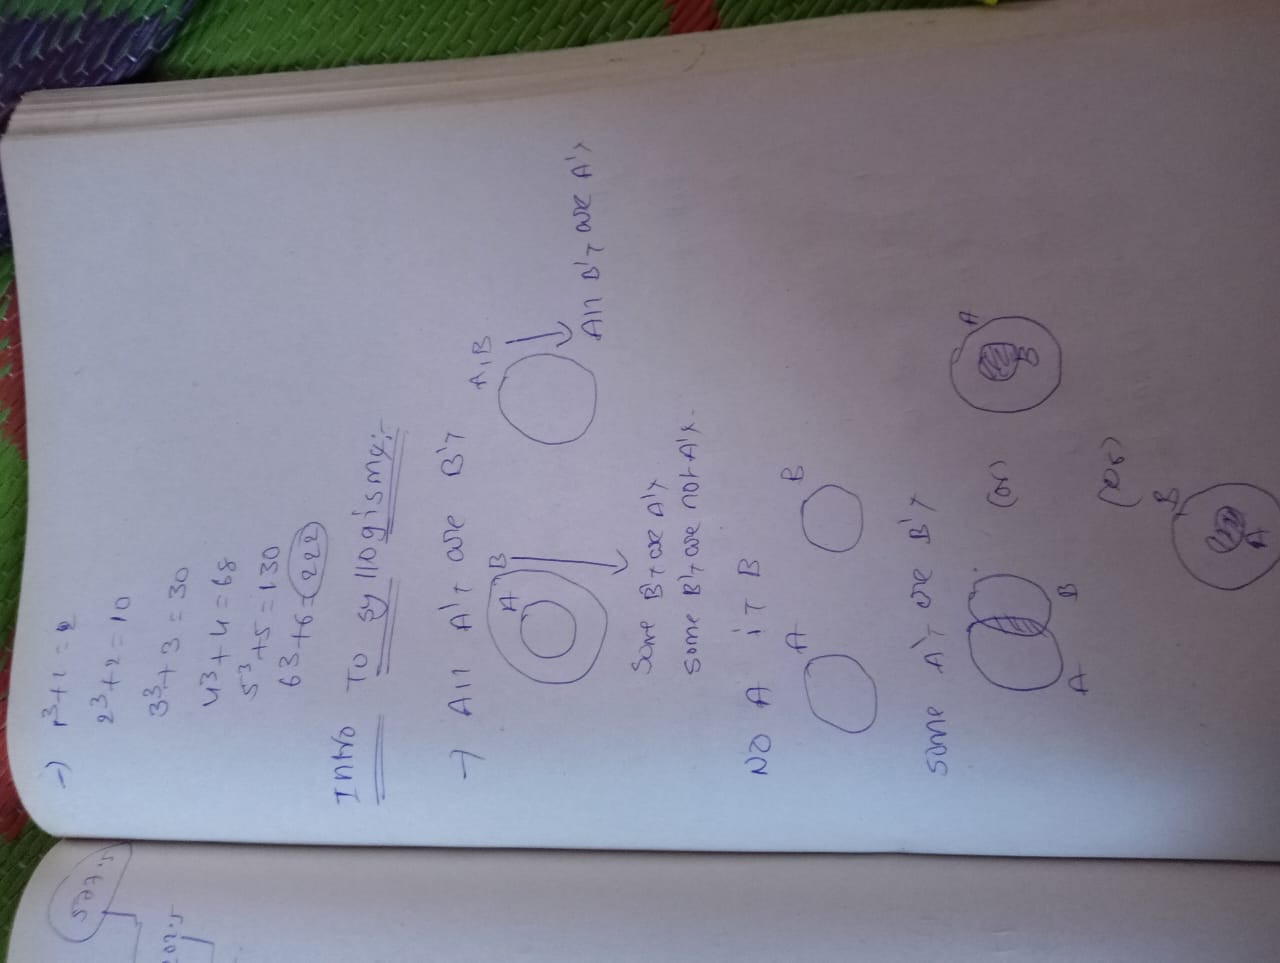 →) 1³+1 = 2
2³+2 = 10
3³+3 = 30
4³+4 = 68
5³+5 = 130
6³+6 = 222
Intro To syllogisms:-
→ All A's are B's
A B
A,B
All B's are A's
Some B's are A's
some B's are not A's.
No A is B
A B
some A's are B's
A B
(or)
A
B
(or)
B
A
527.5
202.5